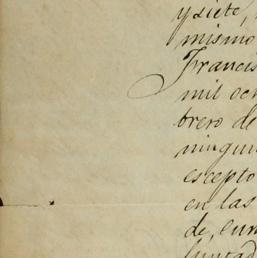 y siete,
mismo
Francis
mil och
brero de
ningun
escepto
en las
de, cum
luntad